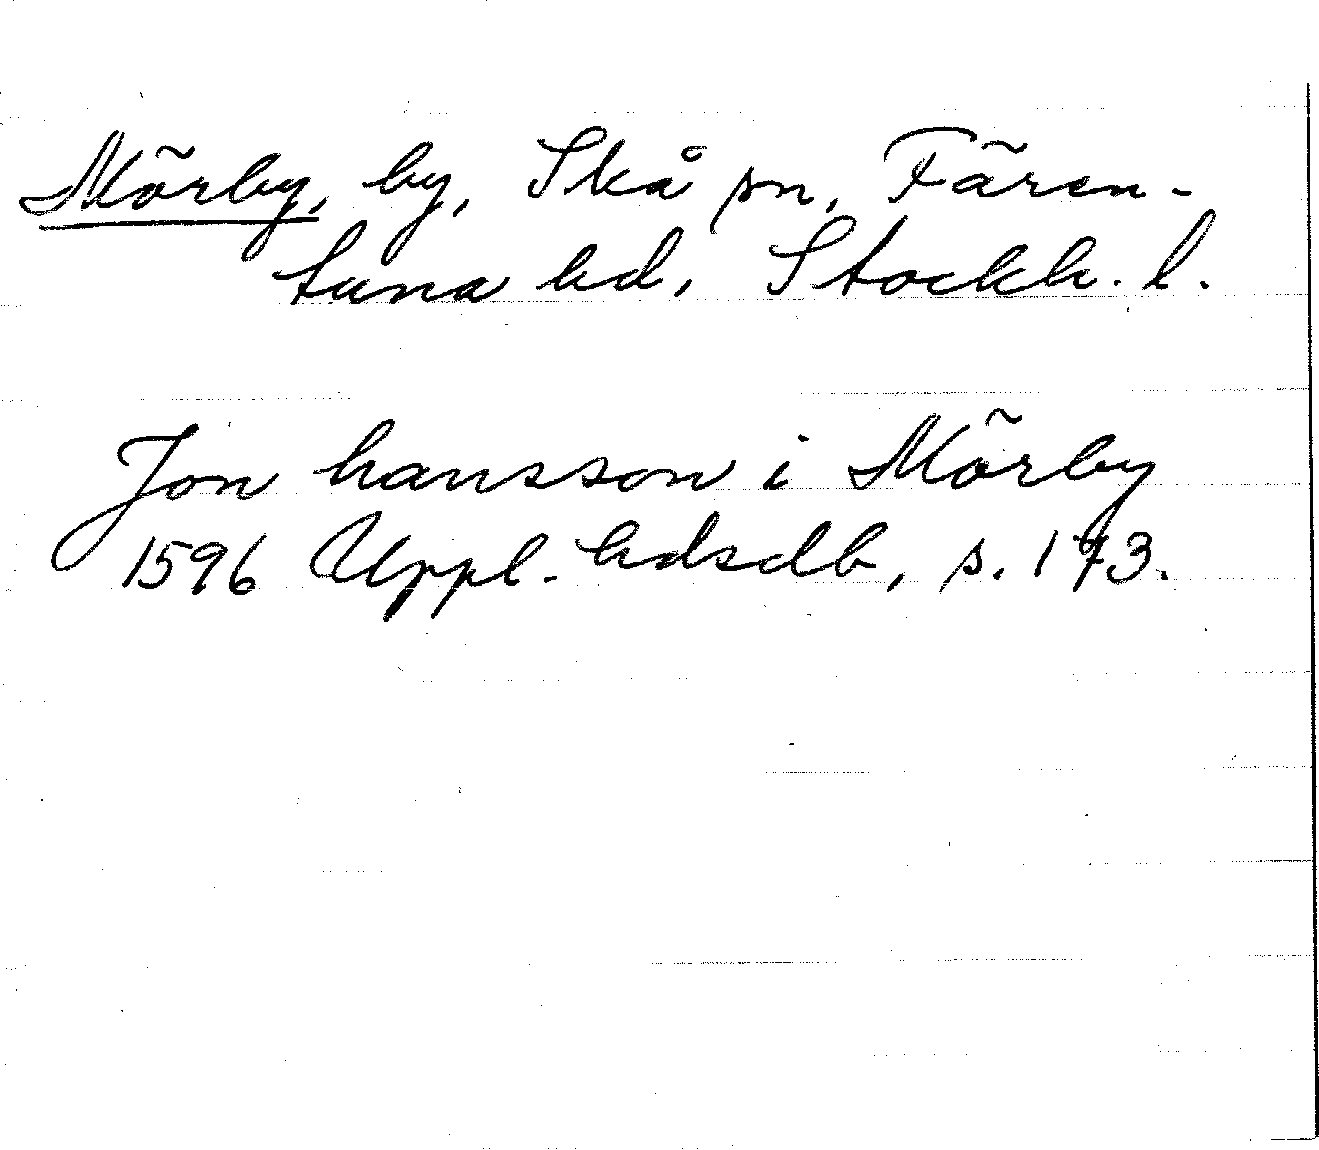 Mörby, by, Skå sn, Fären-
tuna hd, Stockh. l.
Jon hansson i Mörby
1596 Uppl. hdsdb, s. 173.